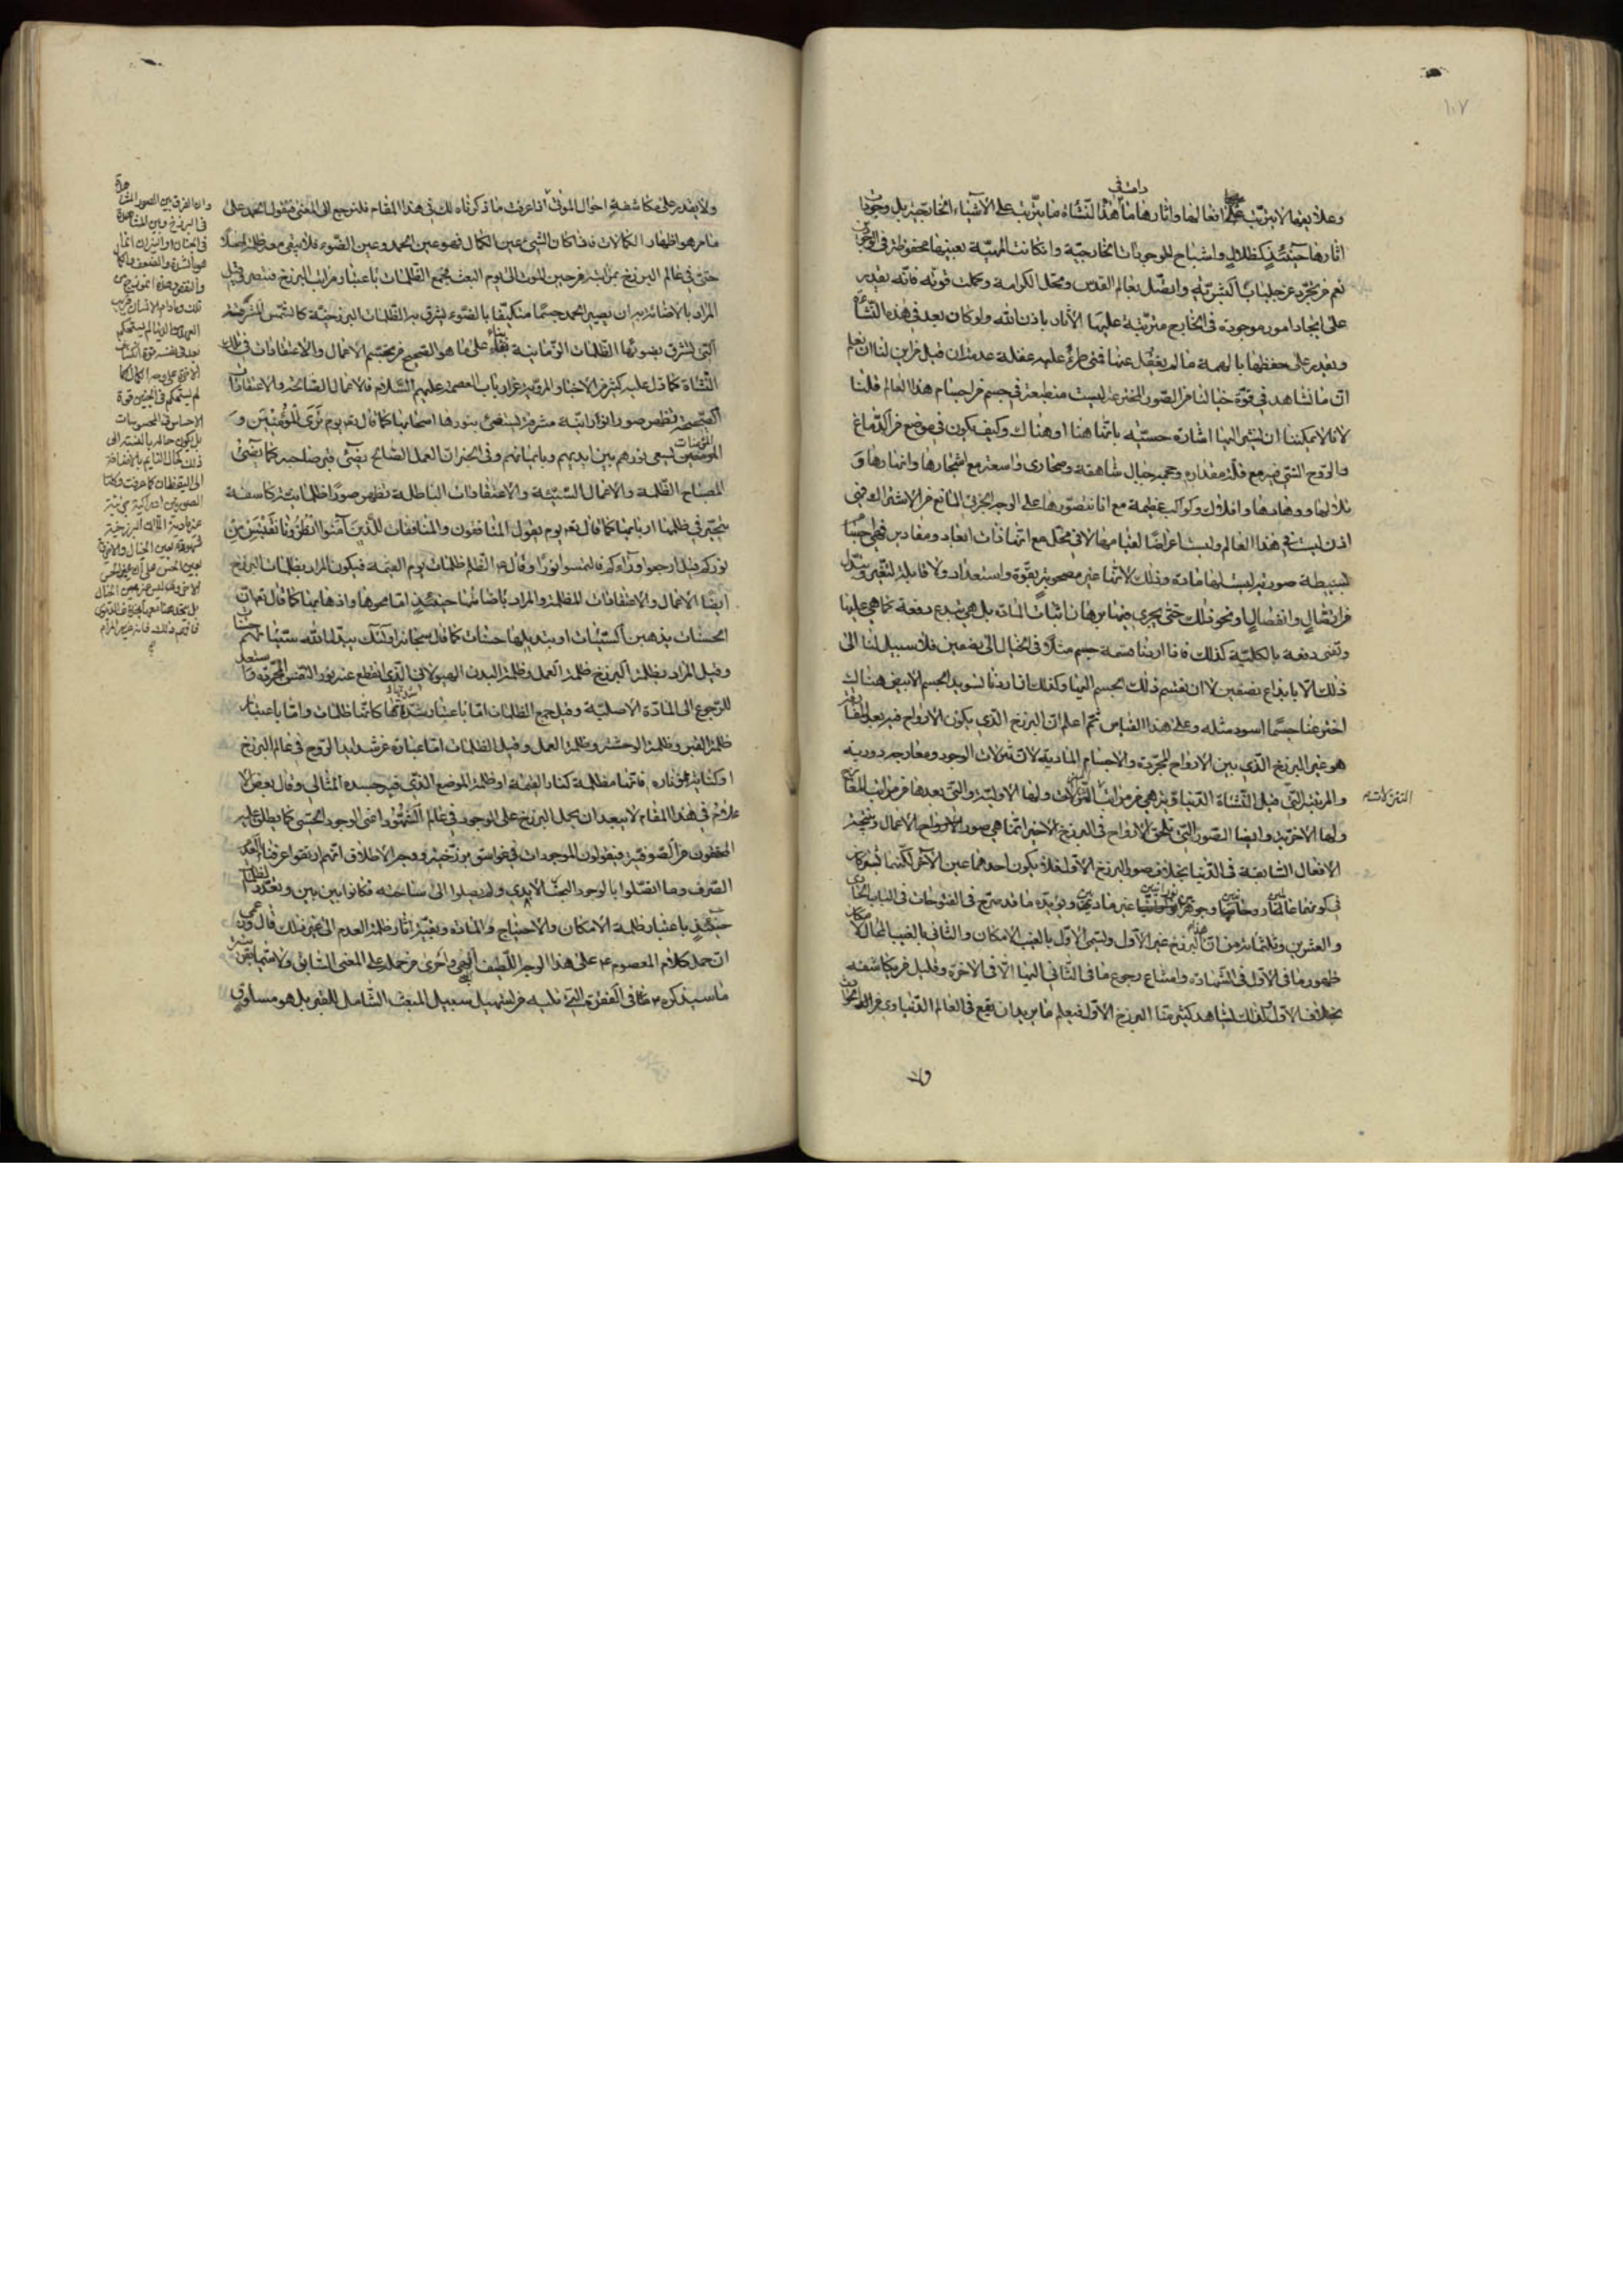 ١٠٧
وعلايقها لا يترتب عليها افعالها واثارها ما دامت في هذه النشأة ما يترتب على الاشياء الخارجية بل وجود
اثارها حينئذ كظلال واشباح للموجودات الخارجية وان كانت المهية بعينها محفوظة في الوجودين
نعم من تجرد عن جلباب البشرية واتصل بعالم القدس ومحل الكرامة وكملت قوته فانه يقدر
على ايجاد امور موجودة في الخارج مترتبة عليها الاثار باذن الله ولو كان بعد في هذه النشأة
ويقدر على حفظها بالهمة ما لم يغفل عنها فمتى طرء عليه غفلة عدم ان قيل من اين لنا ان نعلم
ان ما نشاهد في قوة خيالنا من الصور المخترعة ليست منطبعة في جسم من اجسام هذا العالم قلنا
لانا لا يمكننا ان نشير اليها اشارة حسية بانها هنا او هناك وكيف يكون في موضع من الدماغ
والروح التي فيه مع قلة مقداره وحجمه جبال شاهقة وصحارى واسعة مع اشجارها وانهارها و
تلالها ووهادها وافلاك وكواكب عظيمة مع انا نتصورها على الوجه الجزئي المانع من الاشتراك فهي
اذن ليست في هذا العالم وليست اعراضا لقيامها لا في محل مع انها ذات ابعاد ومقادير فهي اجسام
بسيطة صورية ليست لها مادة وذلك لانها غير مصحوبة بقوة واستعداد ولا قابلة لتغير وتبدل
من اتصال وانفصال ونحو ذلك حتى يجرى فيها برهان اثبات المادة بل هي تبدع دفعة كما هي عليها
وتفنى دفعة بالكلية كذلك فاذا اردنا قسمة جسم مثلا في الخيال الى نصفين فلا سبيل لنا الى
ذلك الا بابداع نصفين لا ان نقسم ذلك الجسم اليهما وكذلك اذا اردنا تسويد الجسم الابيض هناك
اخترعنا جسما اسود مثله وعلى هذا القياس ثم اعلم ان البرزخ الذي يكون الارواح فيه بعد المفارقة
هو غير البرزخ الذي بين الارواح المجردة والاجسام المادية لان تنزلات الوجود ومعارجه دورية
والمرتبة التي قبل النشاة الدنياوية هي من مراتب التنزلات ولها الاولية والتي بعدها من مراتب المعارج
التنزلات
ولها الاخرية وايضا الصور التي تلحق الارواح في البرزخ الاخير انما هي صور الاعمال ونتيجة
الافعال السابقة في الدنيا بخلاف صور البرزخ الاول فلا يكون احدهما عين الآخر لكنهما يشتركان
في كونهما عالما وجوهرا نورانيا غير مادي ويؤيده ما قد صرح في الفتوحات في الباب الحادى
والعشرين وثلثمائة من ان هذا البرزخ غير الاول ويسمى الاول بالغيب الامكان والثاني بالغيب المحالى لامكان
ظهور ما في الاول في الشهادة وامتناع رجوع ما في الثاني اليها الا في الاخرة وقليل من يكاشفه
بخلاف الاول ولذلك يشاهد كثير منا البرزخ الاول فيعلم ما يريد ان يقع في العالم الدنياوى من الحوادث
ولا
ولا يقدر على مكاشفة احوال الموتى اذا عرفت ما ذكرناه لك في هذا المقام فلنرجع الى المعنى فنقول الحمد على
ما مر هو اظهار الكمالات فاذا كان الشيء عين الكمال فهو عين الحمد وعين الضوء فلا يبقى معه ظلمة اصلا
حتى في عالم البرزخ بمراتبه من حين الموت الى يوم البعث فجمع الظلمات باعتبار مراتب البرزخ فتبصر وقيل
المراد بالاضائة به ان يصير الحمد جسما متكيفا بالضوء يشرق به الظلمات البرزخية كالشمس المشرقة
التي تشرق بضوئها الظلمات الزمانية بناء على ما هو الصحيح من تجسم الاعمال والاعتقادات في تلك
النشاة كما دل عليه كثير من الاخبار المروية عن ارباب العصمة عليهم السلام فالاعمال الصالحة والاعتقادات
الصحيحة تظهر صورا نورانية مشرقة يستضئ بنورها اصحابها كما قال تعـ يوم ترى المؤمنين و
المؤمنات يسعى نورهم بين ايديهم وبايمانهم وفي الخبر ان العمل الصالح يضئ قبر صاحبه كما يضئ
المصباح الظلمة والاعمال السيئة والاعتقادات الباطلة تظهر صورا ظلمانية كاسفة
يتحير في ظلمتها اربابها كما قال تعـ يوم يقول المنافقون والمنافقات للذين آمنوا انظرونا نقتبس من
نوركم قيل ارجعوا ورآءكم فالتمسوا نورا وقال الظلم ظلمات يوم القيمة فيكون المراد بظلمات البرزخ
ايضا الاعمال والاعتقادات المظلمة والمراد باضائتها حينئذ اما محوها واذهابها كما قال تعـ ان
الحسنات يذهبن السيئات او تبديلها حسنات كما قال سبحانه اولئك يبدل الله سيئاتهم حسنات
وقيل المراد بظلمة البرزخ ظلمة العمل وظلمة البدن الهيولاني الذي انقطع عنه نور النفس المجردة واستعد
للرجوع الى المادة الاصلية وقيل جمع الظلمات اما باعتبار شدتها كانها ظلمات واما باعتبار
ظلمة القبر وظلمة الوحشة وظلمة العمل وقيل الظلمات اما عبارة عن شدايد الروح في عالم البرزخ
او كناية عن ناره فانها مظلمة كنار القيمة او ظلمة الموضع الذي فيه جسده المثالي وقال بعض الا
علام في هذا المقام لا يبعد ان يحمل البرزخ على الوجود في عالم الشهود اعنى الوجود الحسى كما يطلق عليه
المحققون من الصوفية فيقولون الموجودات في غواسق برزخية ووجه الاطلاق انهم ارتقوا عن فناء العدم
الصرف وما اتصلوا بالوجود البحت الابدى ولم يصلوا الى ساحته فكانوا بين بين وتعدد الظلمات
حينئذ باعتبار ظلمة الامكان والاحتياج والمادة وتغير اثار ظلمة العدم الى غير ذلك قال وعندى
ان حمل كلام المعصوم على هذا الوجه اللطيف اولى واحرى من حمله على المعنى السابق ولا سيما بقرينة
ما سيذكره في الفقرة التي تليه من تسهيل سبيل المبعث الشامل للقبر بل هو مساوق
هذا
وان الفرق بين الصور المشاهدة
في البرزخ وبين المشاهدة
في الجنان والنيران انما
هو بالشدة والضعف والكمال
والنقص وهذه انموذج من
تلك وما دام الانسان قريب
العهد من الدنيا لم يستحكم
بعد في نفسه قوة انكشاف
الآخرة على وجه الكمال كما
لم يستحكم في الجنين قوة
الاحساس بالمحسوسات
بل يكون حاله بالنسبة الى
ذلك كحال النايم بالاضافة
الى اليقظان كما عرفت